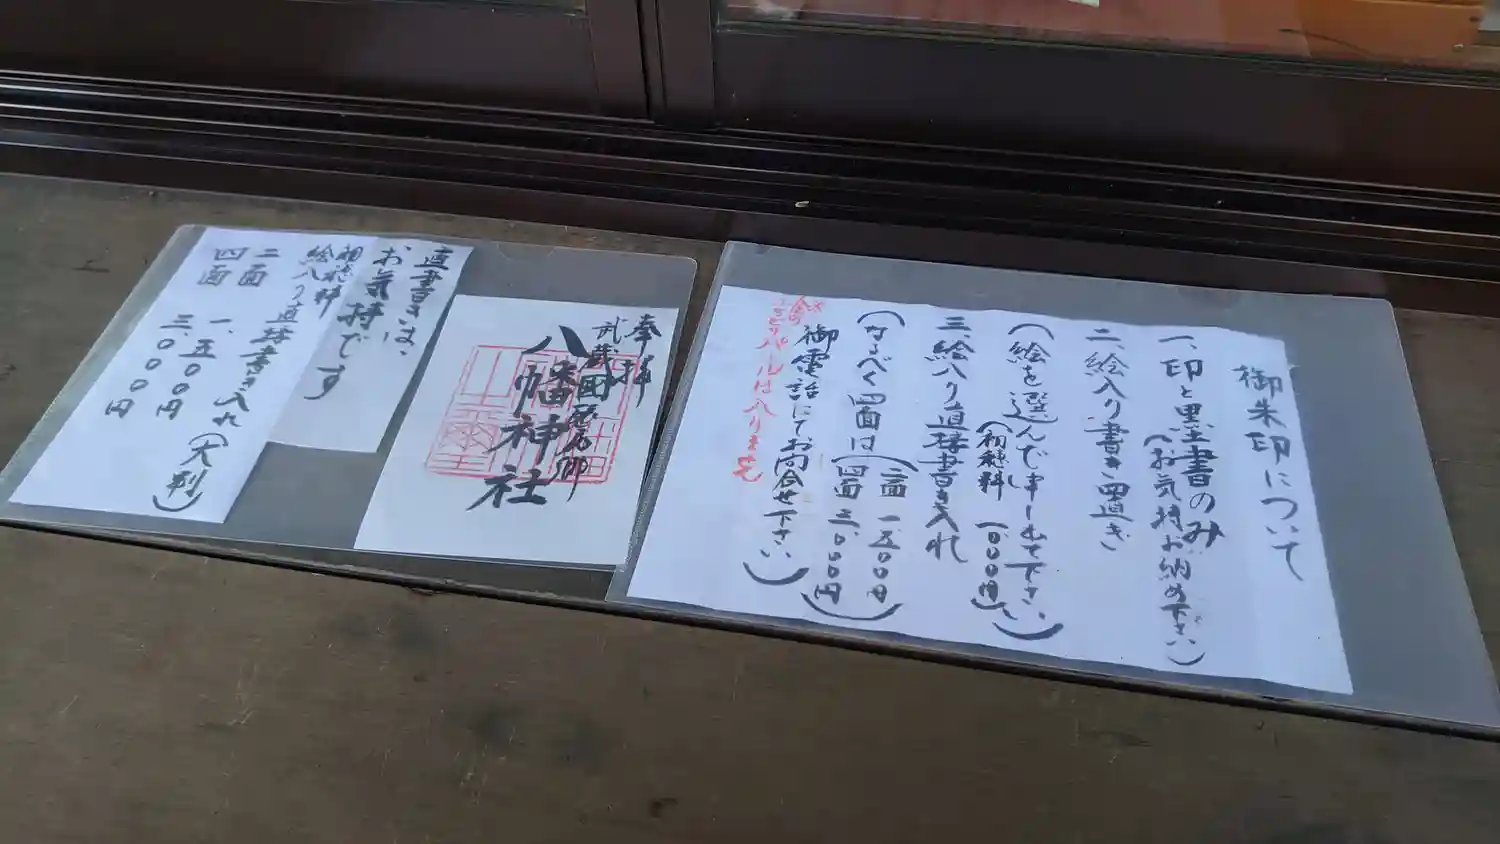 御朱印について
一、印と墨書のみ
(お気持お納め下さい)
二、絵入り書き置き
(絵を選んで申し出て下さい)
(初穂料 一、〇〇〇円)
三、絵入り直接書き入れ
(二面 一、五〇〇円
四面 三、〇〇〇円)
(なるべく四面は
御電話にてお問合せ下さい)
は入りません
奉拝
武蔵国
八幡神社
直書きは、
お気持です
初穂料
絵入り直接書き入れ(大判)
二面 一、五〇〇円
四面 三、〇〇〇円